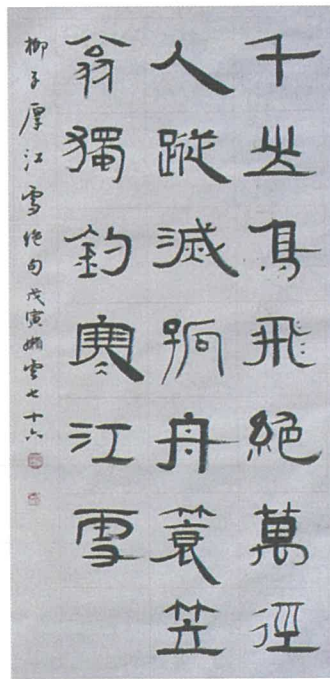 千山鳥飛絕萬徑
人蹤滅孤舟簑笠
翁獨釣寒江雪
柳子厚江雪絕句戊寅雲七十六